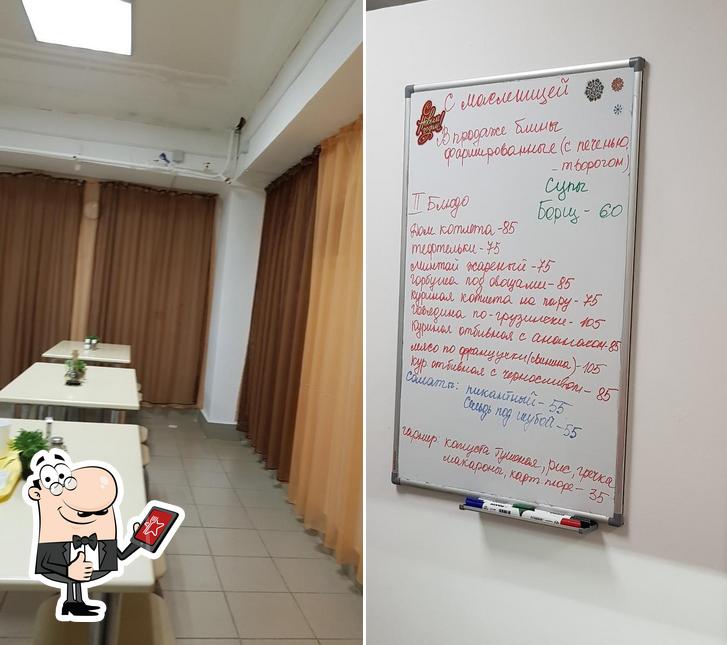 С масленицей
В продаже блины
фаршированные (с печенью,
- творогом)
Супы
Борщ - 60
II Блюдо
Дом котлета - 85
тефтельки - 75
минтай жареный - 75
горбуша под овощами - 85
куриная котлета на пару - 75
говядина по-грузински - 105
куриная отбивная с ананасом - 85
мясо по французски (свинина) - 105
кур отбивная с черносливом - 85
Салаты: пикантный - 55
Сельдь под шубой - 55
гарнир: капуста тушоная, рис, гречка
макароны, карт пюре - 35